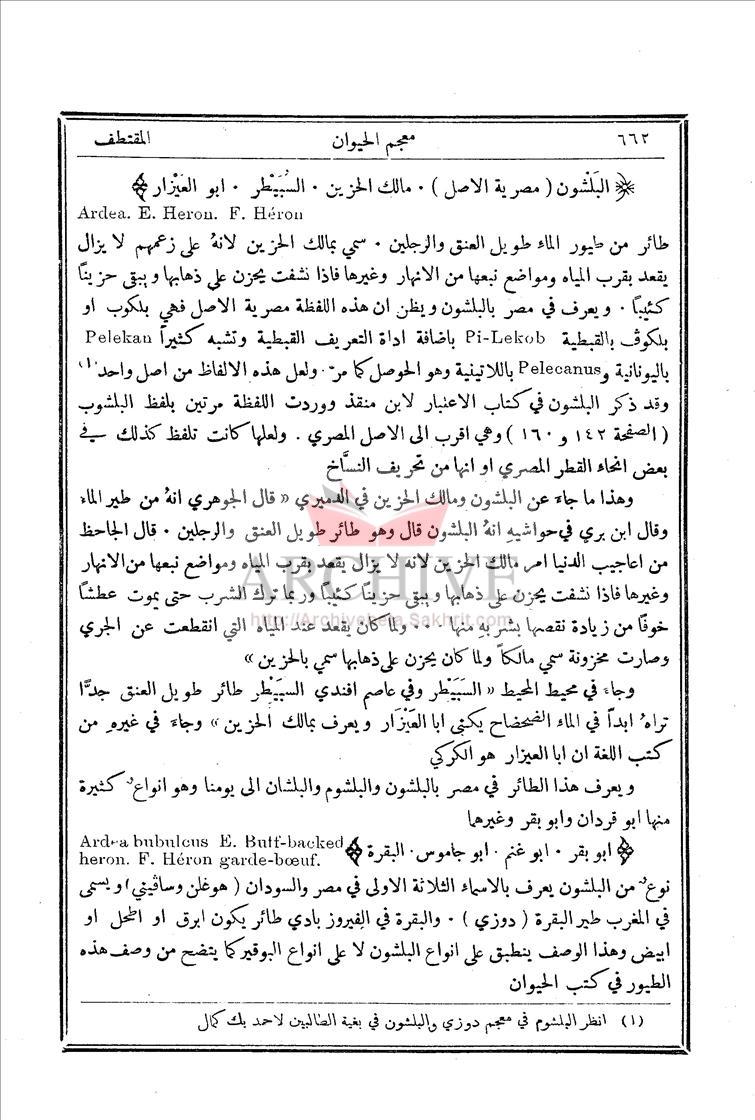 ٦٦٢ معجم الحيوان المقتطف
البَلَشون ( مصرية الاصل ) ٠ مالك الحزين ٠ السُّبَيْطر ٠ ابو العَيْزار
Ardea. E. Heron. F. Héron
طائر من طيور الماء طويل العنق والرجلين ٠ سمي بمالك الحزين لانهُ على زعمهم لا يزال
يقعد بقرب المياه ومواضع نبعها من الانهار وغيرها فاذا نشفت يحزن على ذهابها ويبقى حزيناً
كئيباً ٠ ويعرف في مصر بالبلشون ويظن ان هذه اللفظة مصرية الاصل فهي بلكوب او
بلكوڤ بالقبطية Pi-Lekob باضافة اداة التعريف القبطية وتشبه كثيراً Pelekan
باليونانية وPelecanus باللاتينية وهو الحوصل كما مرّ ٠ ولعل هذه الالفاظ من اصل واحد (١)
وقد ذكر البلشون في كتاب الاعتبار لابن منقذ ووردت اللفظة مرتين بلفظ البلشوب
( الصفحة ١٤٢ و ١٦٠ ) وهي اقرب الى الاصل المصري ٠ ولعلها كانت تلفظ كذلك في
بعض انحاء القطر المصري او انها من تحريف النسَّاخ
وهذا ما جاءَ عن البلشون ومالك الحزين في الدميري « قال الجوهري انهُ من طير الماء
وقال ابن بري في حواشيهِ انهُ البلشون قال وهو طائر طويل العنق والرجلين ٠ قال الجاحظ
من اعاجيب الدنيا امر مالك الحزين لانه لا يزال يقعد بقرب المياه ومواضع نبعها من الانهار
وغيرها فاذا نشفت يحزن على ذهابها ويبقى حزيناً كئيباً وربما ترك الشرب حتى يموت عطشاً
خوفاً من زيادة نقصها بشربهِ منها ٠٠٠ ولما كان يقعد عند المياه التي انقطعت عن الجري
وصارت مخزونة سمي مالكاً ولما كان يحزن على ذهابها سمي بالحزين »
وجاءَ في محيط المحيط « السَبَيْطر وفي عاصم افندي السبَيْطر طائر طويل العنق جدًّا
تراهُ ابداً في الماء الضحضاح يكنى ابا العَيْزَار ويعرف بمالك الحزين » وجاءَ في غيرهِ من
كتب اللغة ان ابا العيزار هو الكركي
ويعرف هذا الطائر في مصر بالبلشون والبلشوم والبلشان الى يومنا وهو انواعٌ كثيرة
منها ابو قردان وابو بقر وغيرهما
ابو بقر ٠ ابو غنم ٠ ابو جاموس ٠ البقرة
Ardea bubulcus E. Buff-backed
heron. F. Héron garde-bœuf.
نوعٌ من البلشون يعرف بالاسماء الثلاثة الاولى في مصر والسودان ( هوغلن وساڤيني ) ويسمى
في المغرب طير البقرة ( دوزي ) ٠ والبقرة في الفيروز بادي طائر يكون ابرق او اطحل او
ابيض وهذا الوصف ينطبق على انواع البلشون لا على انواع البوقير كما يتضح من وصف هذه
الطيور في كتب الحيوان
(١) انظر البلشوم في معجم دوزي والبلشون في بغية الطالبين لاحمد بك كمال
ARCHIVE
http://Archivebeta.Sakhrit.com